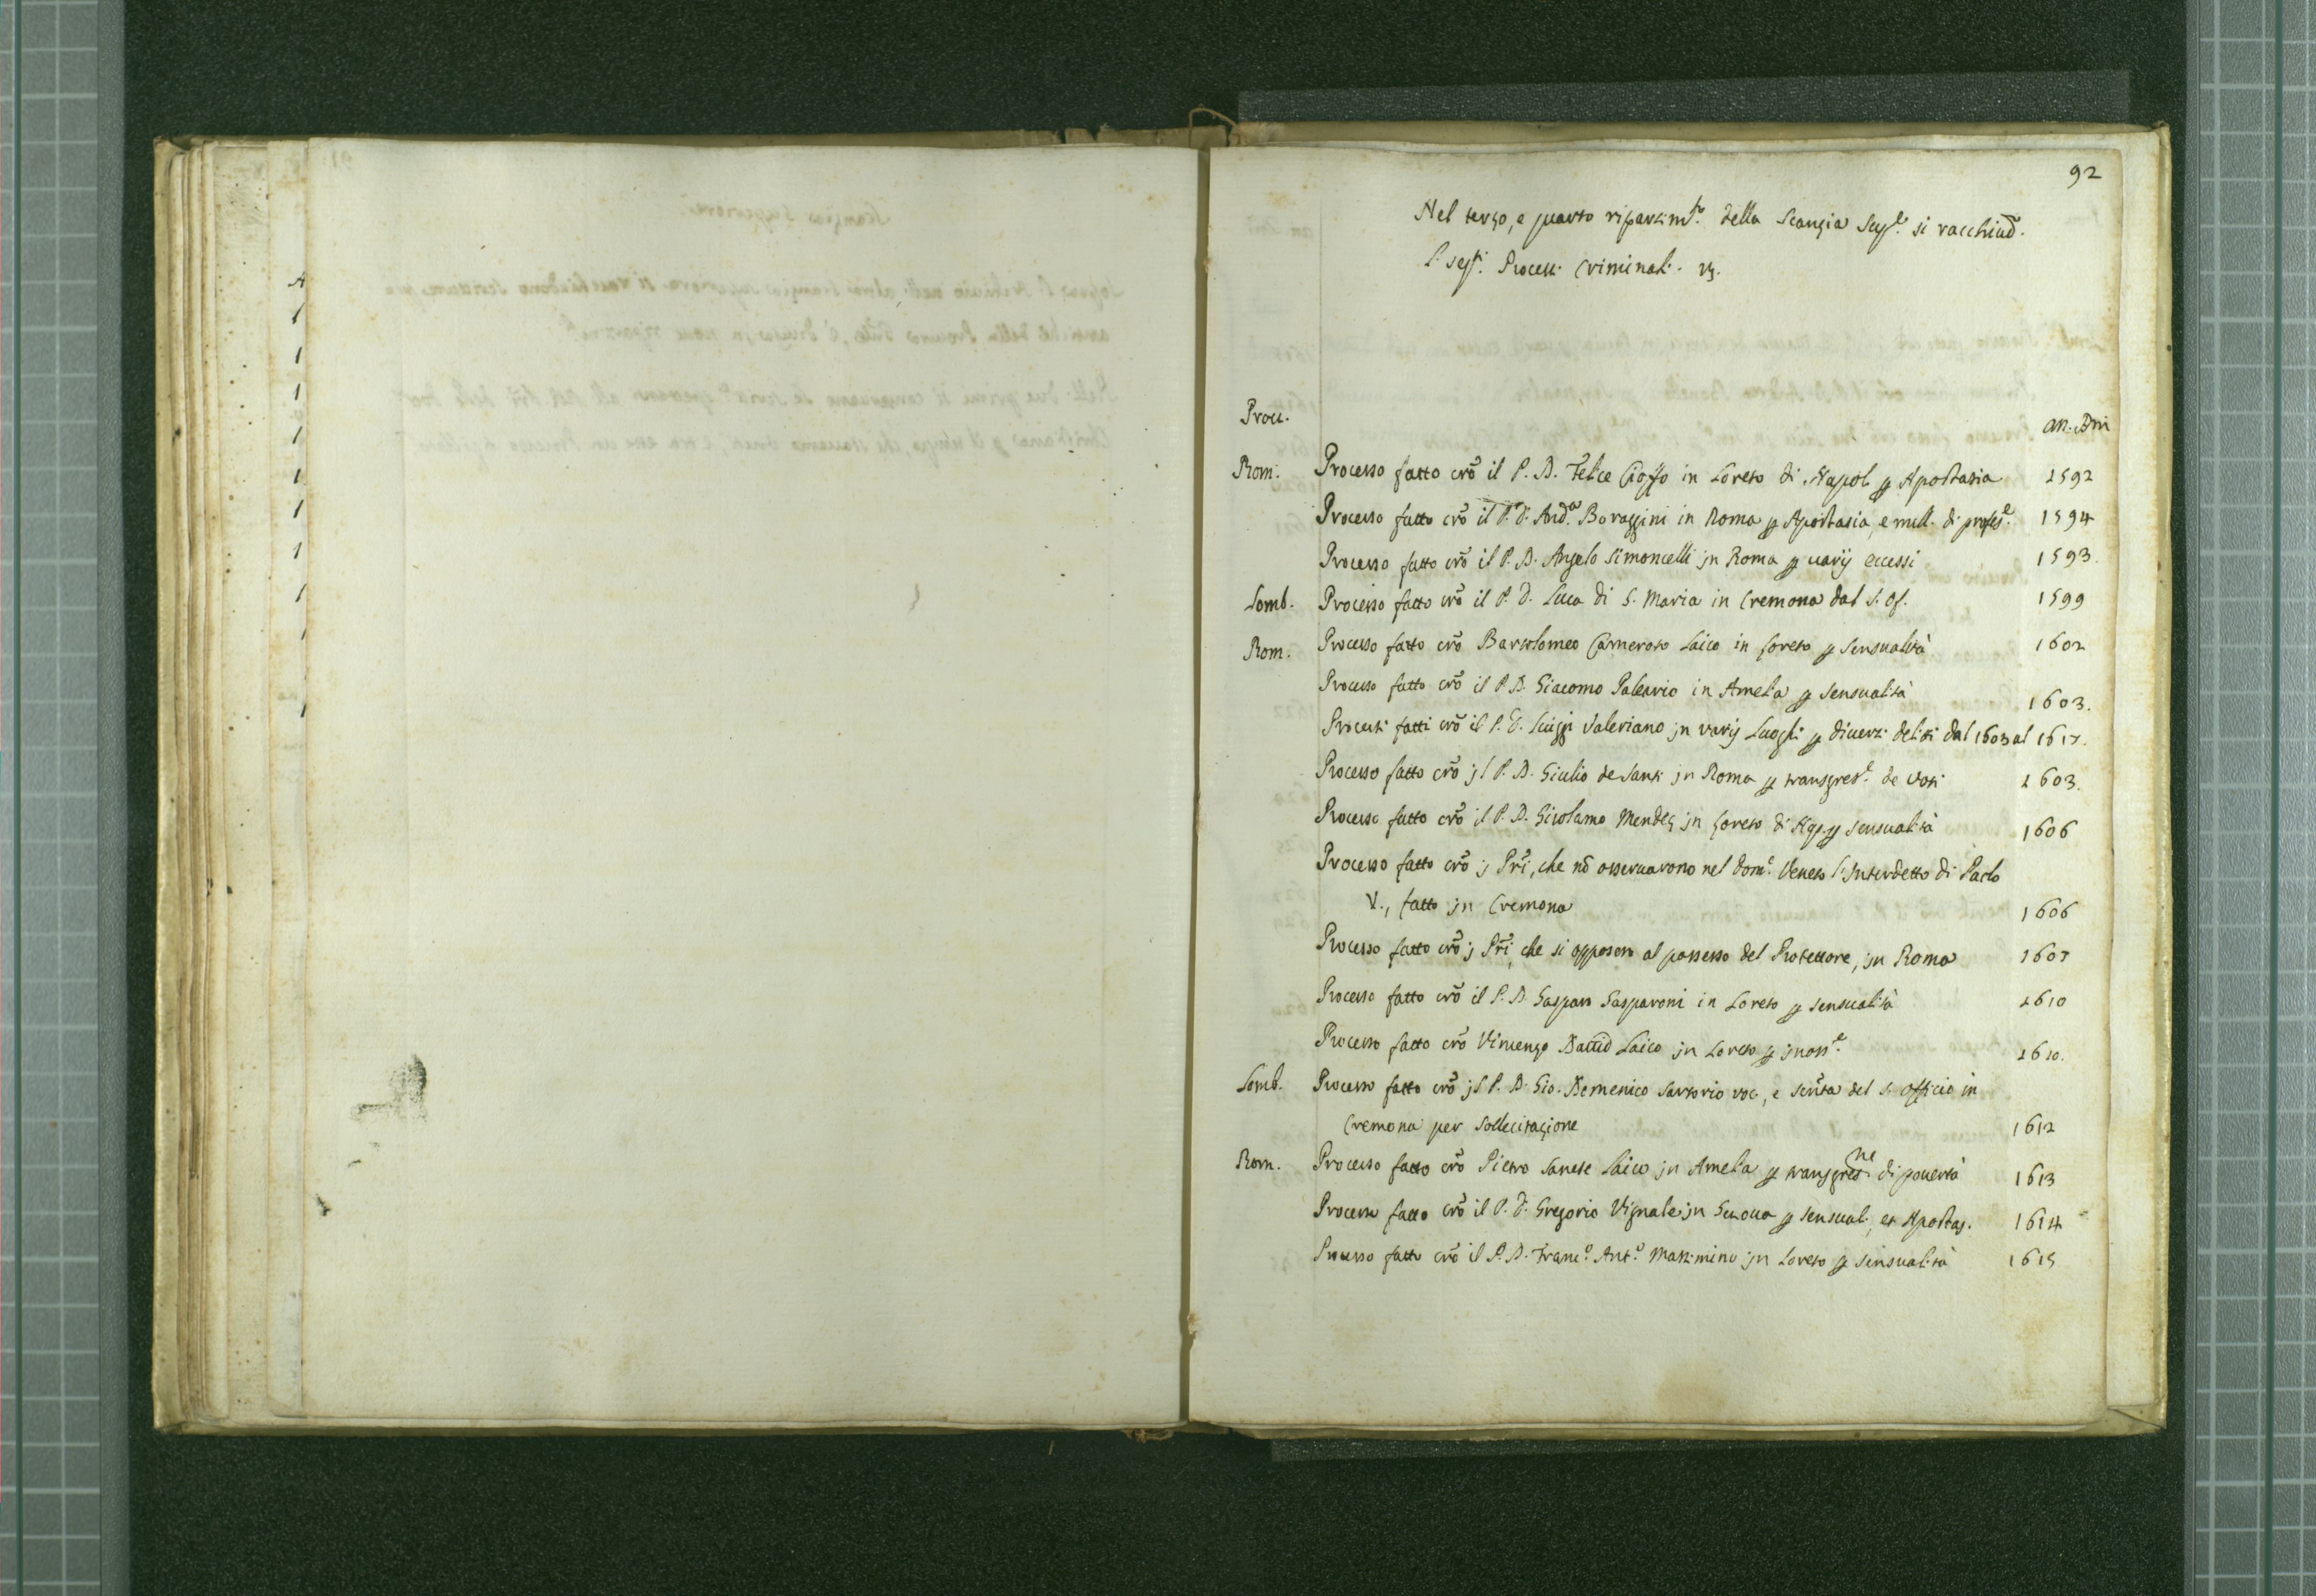 92
Nel terzo, e quarto ripartimto. della Scanzia Supe. si racchiud.
li segti. Processi Criminali. vz.
Prou. an. Dni
Rom. Processo fatto crõ il P. D. Felice in Loreto di Napol. p Apostasia 1592
Processo fatto crõ il P. D. Anda. Boraggini in Roma p Apostasia, e null. di profese. 1594
Processo fatto crõ il P. D. Angelo Simoncelli jn Roma p uarij eccessi 1593.
Lomb. Processo fatto crõ il P. D. Luca di S. Maria in Cremona dal S. Of. 1599
Rom. Processo fatto crõ Bartolomeo Cameroto Laico in Loreto p sensualità 1602
Processo fatto crõ il P. D. Giacomo Paleario in Amelia p sensualità 1603.
Processi fatti crõ il P. D. Luiggi Valeriano jn varij Luoghi p diuersi delitti dal 1603 al 1617.
Processo fatto crõ jl P. D. Giulio de Santi jn Roma p transgrese. de voti 1603.
Processo fatto crõ il P. D. Girolamo Mendez jn Loreto di Np. p sensualità 1606
Processo fatto crõ j Pri, che nõ osseruarono nel Dome. Veneto l'Interdetto di Paolo
V., fatto jn Cremona 1606
Processo fatto crõ j Pri, che si opposero al possesso del Protettore, jn Roma 1607
Processo fatto crõ il P. D. Gaspare Gasparoni in Loreto p sensualità 1610
Processo fatto crõ Vincenzo Dauid Laico jn Loreto p 1610.
Lomb. Processo fatto crõ jl P. D. Gio. Domenico Sartorio voc., e senta del S. Officio in
Cremona per sollecitazione 1612
Rom. Processo fatto crõ Pietro Sanese Laico jn Amelia p transgresne di pouertà 1613
Processo fatto crõ il P. D. Gregorio Vignale jn Genoua p sensual., et Apostas. 1614
Processo fatto crõ il P. D. Franco. Anto. Massimino jn Loreto p sensualità 1615